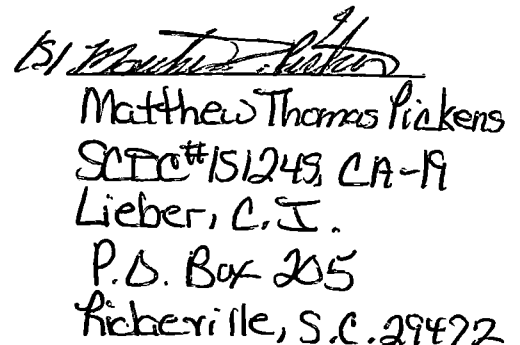 /s/
Matthew Thomas Pickens
SCDC#151249, CA-19
Lieber, C.I.
P.O. Box 205
Ridgeville, S.C. 29472